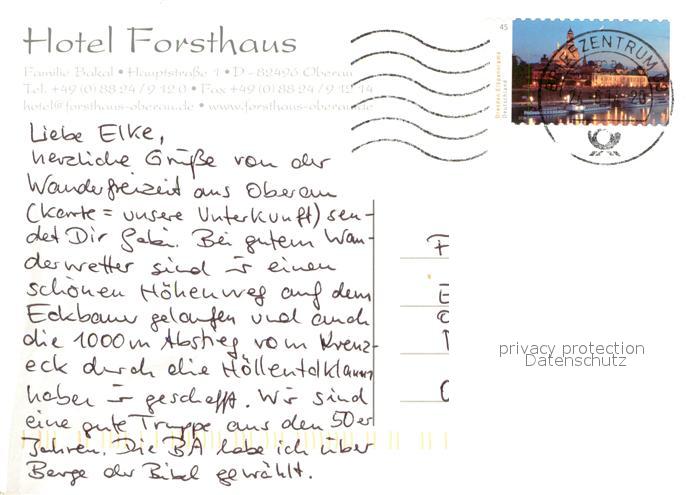 Hotel Forsthaus
Familie Bakal • Hauptstraße 1 • D - 82496 Oberau
Tel. +49 (0) 88 24 / 9 12 0 • Fax +49 (0) 88 24 / 9 12 14
hotel@forsthaus-oberau.de • www.forsthaus-oberau.de
45
Dresden Elbpanorama
Deutschland
BRIEFZENTRUM
Liebe Elke,
herzliche Grüße von der
Wanderfreizeit aus Oberau
(Karte = unsere Unterkunft) sen-
det Dir Gabi. Bei gutem Wan-
derwetter sind wir einen
schönen Höhenweg auf dem
Eckbauer gelaufen und auch
die 1000m Abstieg vom Kreuz-
eck durch die Höllentalklamm
haben wir geschafft. Wir sind
eine gute Truppe aus den 50er
Jahren. Die BA habe ich über
Berge der Bibel gewählt.
privacy protection
Datenschutz